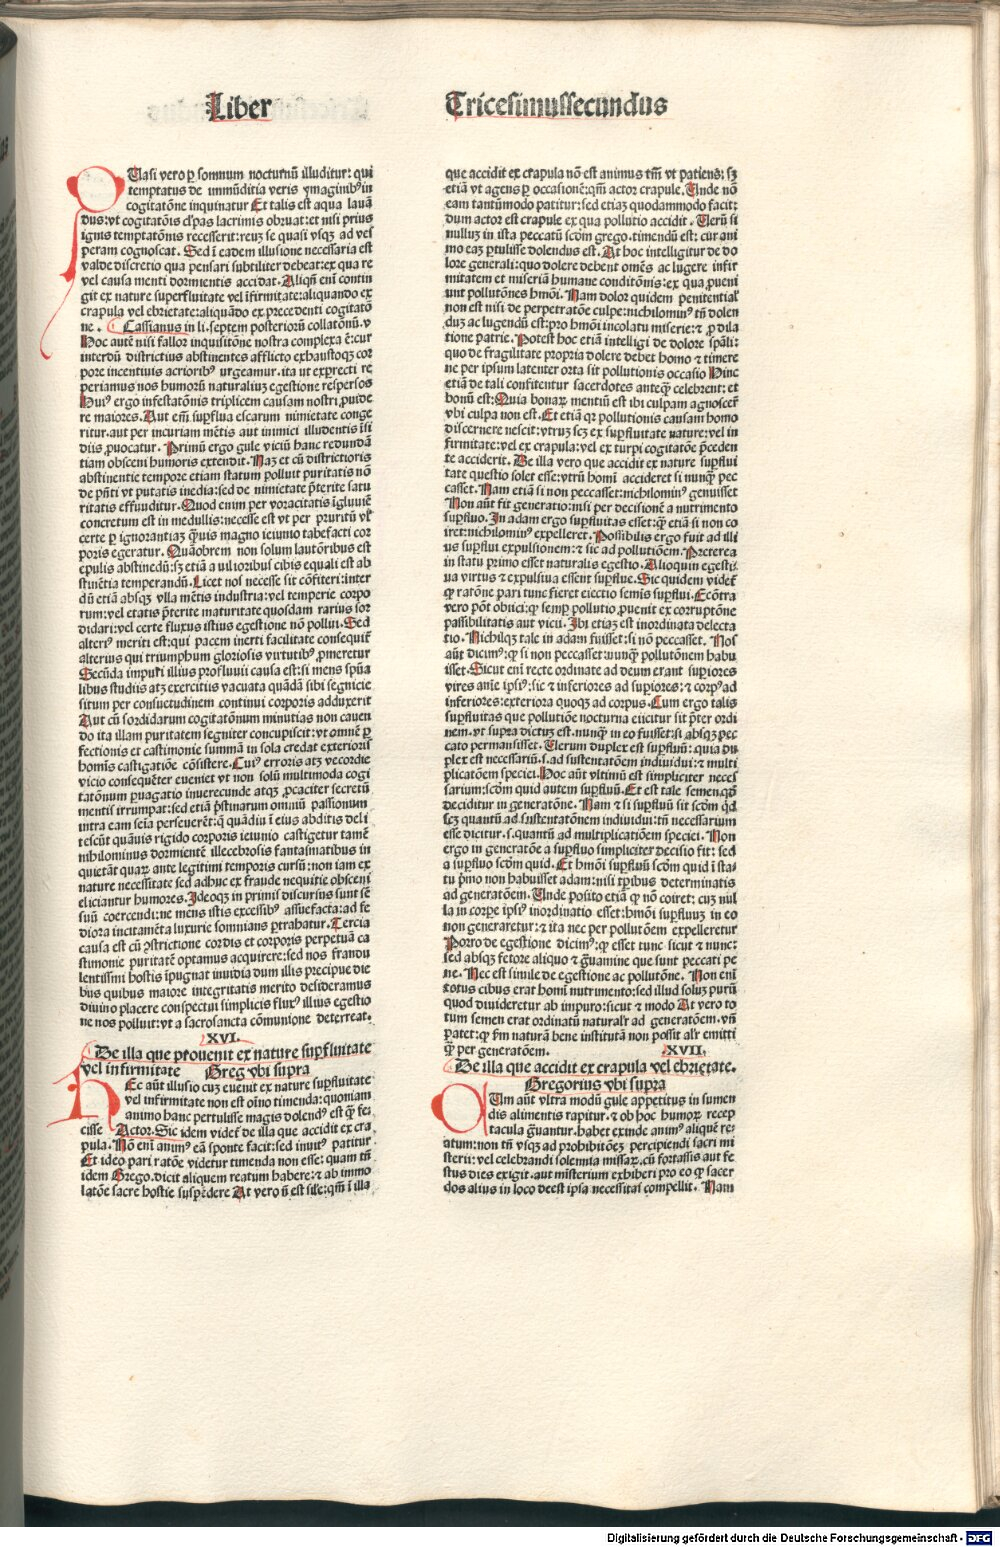 Liber
Tricesimussecundus
Uasi vero ꝑ somnum nocturnū illuditur: qui
temptatus de immūditia veris ymaginibꝰ in
cogitatōne inquinatur Et talis est aqua lauā
dus: vt cogitatōis cl̓pas lacrimis obruat: et nisi prius
ignis temptatōnis recesserit: reuȝ se quasi vsqȝ ad ves
peram cognoscat. Sed ī eadem illusione necessaria est
valde discretio qua pensari subtiliter debeat: ex qua re
vel causa menti dormientis accidat. Aliqn̄ enī contin
git ex nature superfluitate vel īfirmitate: aliquando ex
crapula vel ebrietate: aliquādo ex precedenti cogitatō
ne. Cassianus in li. septem posteriorū collatōnū. v
Hoc autē nisi fallor inquisitōne nostra complexa ē: cur
interdū districtius abstinentes afflicto exhaustoqȝ cor
pore incentiuis acrioribꝰ vrgeamur. ita ut exꝑrecti re
periamus nos humorū naturaliuȝ egestione respersos
Huiꝰ ergo infestatōnis triplicem causam nostri ꝓuide
re maiores. Aut em̄ suꝑflua escarum nimietate conge
ritur. aut per incuriam mētis aut inimici illudentis īsi
diis ꝓuocatur. Primū ergo gule viciū hanc redundā
tiam obsceni humoris extendit. Naȝ et cū districtioris
abstinentie tempore etiam statum polluit puritatis nō
de pn̄ti vt putatis inedia: sed de nimietate p̄terite satu
ritatis effunditur. Quod enim per voracitatis īgluuiē
concretum est in medullis: necesse est vt per pruritū vl̓
certe ꝑ ignorantiaȝ q̄uis magno ieiunio tabefacti cor
poris egeratur. Quāobrem non solum lautōribus est
epulis abstinedū: sȝ etiā a vilioribus cibis equali est ab
stinētia temperandū. Licet nos necesse sit cōfiteri: inter
dū etiā absqȝ vlla mētis industria: vel temperie corpo
rum: vel etatis p̄terite maturitate quosdam rarius sor
didari: vel certe fluxus istius egestione nō pollui. Sed
alteriꝰ meriti est: qui pacem inerti facilitate consequit̄
alterius qui triumphum gloriosis virtutibꝰ ꝓmeretur
Secūda impuri illius profluuii causa est: si mens spūa
libus studiis atȝ exercitiis vacuata quādā sibi segnicie
situm per consuetudinem continui corporis adduxerit
Aut cū sordidarum cogitatōnum minutias non cauen
do ita illam puritatem segniter concupiscit: vt omnē ꝑ
fectionis et castimonie summā in sola credat exterioris
homīs castigatiōe cōsistere. Cuiꝰ erroris atȝ vecordie
vicio consequēter eueniet vt non solū multimoda cogi
tatōnum ꝑuagatio inuerecunde atqȝ ꝓcaciter secretū
mentis irrumpat: sed etiā p̄stinatum omniū passionum
intra eam seīa perseuerēt: q̄ quādiu ī eius abditis deli
tescūt quāuis rigido corporis ieiunio castigetur tamē
nihilominus dormientē illecebrosis fantasmatibus in
quietāt quaꝝ ante legitimi temporis cursū: non iam ex
nature necessitate sed adhuc ex fraude nequitie obsceni
eliciantur humores. Ideoqȝ in primis discursus sunt sē
suū coercendi: ne mens istis excessibꝰ assuefacta: ad fe
diora incitamēta luxurie somnians ꝑtrahatur. Tercia
causa est cū ꝯstrictione cordis et corporis perpetuā ca
stimonie puritatē optamus acquirere: sed nos fraudu
lentissimi hostis īpugnat inuidia dum illis precipue die
bus quibus maiore integritatis merito desideramus
diuino placere conspectui simplicis fluxꝰ illius egestio
ne nos polluit: vt a sacrosancta cōmunione deterreat.
XVI.
De illa que prouenit ex nature suꝑfluitate
vel infirmitate Greg vbi supra
Hec aūt illusio cuȝ euenit ex nature suꝑfluitate
vel infirmitate non est oīno timenda: quoniam
animo hanc pertulisse magis dolendꝰ est q̄ fe
cisse Actor. Sic idem videt̄ de illa que accidit ex cra
pula. Nō enī animꝰ eā sponte facit: sed inuitꝰ patitur
Et ideo pari ratōe videtur timenda non esse: quam tn̄
idem Grego. dicit aliquem reatum habere: ⁊ ab immo
latōe sacre hostie suspēdere At vero ū est sil̓e: qm̄ ī illa
que accidit ex crapula nō est animus tm̄ vt patiens: sȝ
etiā vt agens ꝑ occasionē: qm̄ actor crapule. Unde nō
eam tantūmodo patitur: sed etiaȝ quodammodo facit:
dum actor est crapule ex qua pollutio accidit. Uerū si
nulluȝ in ista peccatū scd̓m grego. timendū est: cur ani
mo eaȝ ꝑtulisse dolendus est. At hoc intelligitur de do
lore generali: quo dolere debent omēs ac lugere infir
mitatem et miseriā humane conditōnis: ex qua ꝓueni
unt pollutōnes hmōi. Nam dolor quidem penitential̓
non est nisi de perpetratōe culpe: nichilominꝰ tn̄ dolen
duȝ ac lugendū est: pro hmōi incolatu miserie: ⁊ ꝓ dila
tione patrie. Potest hoc etiā intelligi de dolore spāli:
quo de fragilitate propria dolere debet homo ⁊ timere
ne per ipsum latenter orta sit pollutionis occasio Hinc
etiā de tali confitentur sacerdotes anteq̄ celebrent: et
bonū est: Quia bonaꝝ mentiū est ibi culpam agnoscer̄
vbi culpa non est. Et etiā qꝛ pollutionis causam homo
discernere nescit: vtruȝ scȝ ex suꝑfluitate nature: vel in
firmitate: vel ex crapula: vel ex turpi cogitatōe p̄ceden
te acciderit. De illa vero que accidit ex nature suꝑflui
tate questio solet esse: vtrū homī accideret si nunq̄ pec
casset. Nam etiā si non peccasset: nichilominꝰ genuisset
Non aūt fit generatio: nisi per decisionē a nutrimento
suꝑfluo. In adam ergo suꝑfluitas esset: q̄ etiā si non co
iret: nichilominꝰ expelleret. Possibilis ergo fuit ad illi
us suꝑflui expulsionem: ⁊ sic ad pollutiōem. Preterea
in statu primo esset naturalis egestio. Alioquin egesti
ua virtus ⁊ expulsiua essent suꝑflue. Sic quidem videt̄
ꝙ ratōne pari tunc fieret eiectio semīs suꝑflui. Ecōtra
vero pōt obiici: ꝙ semꝑ pollutio ꝓuenit ex corruptōne
passibilitatis aut vicii. Ibi etiaȝ est inordinata delecta
tio. Nichilqȝ tale in adam fuisset: si nō peccasset. Nos
aūt dicimꝰ: ꝙ si non peccasset: nunq̄ pollutōnem habu
isset. Sicut enī recte ordinate ad deum erant suꝑiores
vires anīe ipsiꝰ: sic ⁊ inferiores ad suꝑiores: ⁊ corpꝰ ad
inferiores: exteriora quoqȝ ad corpus. Cum ergo talis
suꝑfluitas que pollutiōe nocturna eiicitur sit p̄ter ordi
nem. vt supra dictuȝ est. nunq̄ in eo fuisset: si absqȝ pec
cato permansisset. Uerum duplex est suꝑfluū: quia du
plex est necessariū. s. ad sustentatōem indiuidui: ⁊ multi
plicatōem speciei. Hoc aūt vltimū est simpliciter neces
sarium: scd̓m quid autem suꝑfluū. Et est tale semen. qd̓
deciditur in generatōne. Nam ⁊ si suꝑfluū sit scd̓m qd̓
scȝ quantū ad sustentatōnem indiuidui: tn̄ necessarium
esse dicitur. s. quantū ad multiplicatiōem speciei. Non
ergo in generatōe a suꝑfluo simpliciter decisio fit: sed
a suꝑfluo scd̓m quid. Et hmōi suꝑfluū scd̓m quid ī sta
tu p̄mo non habuisset adam: nisi tꝑibus determinatis
ad generatōem. Unde posito etiā ꝙ nō coiret: cuȝ nul
la in corꝑe ipsiꝰ inordinatio esset: hmōi suꝑfluuȝ in eo
non generaretur: ⁊ ita nec per pollutōem expelleretur
Porro de egestione dicimꝰ: ꝙ esset tunc sicut ⁊ nunc:
sed absqȝ fetore aliquo ⁊ g̓uamine que sunt peccati pe
ne. Nec est simile de egestione ac pollutōne. Non enī
totus cibus erat homī nutrimento: sed illud soluȝ purū
quod diuideretur ab impuro: sicut ⁊ modo At vero to
tum semen erat ordinatū naturalr̄ ad generatōem. vn̄
patet: ꝙ ꝑm̄ naturā bene institutā non possit alr̄ emitti
q̄ per generatōem. XVII.
De illa que accidit ex crapula vel ebrietate.
Gregorius vbi supra
Um aūt vltra modū gule appetitus in sumen
dis alimentis rapitur. ⁊ ob hoc humoꝝ recep
tacula g̓uantur. habet exinde animꝰ aliquē re:
atum: non tn̄ vsqȝ ad prohibitōeȝ percipiendi sacri mi
sterii: vel celebrandi solennia missaꝝ. cū fortassis aut fe
stus dies exigit. aut misterium exhiberi pro eo ꝙ sacer
dos alius in loco deest ipsa necessitas compellit. Nam
Digitalisierung gefördert durch die Deutsche Forschungsgemeinschaft - DFG